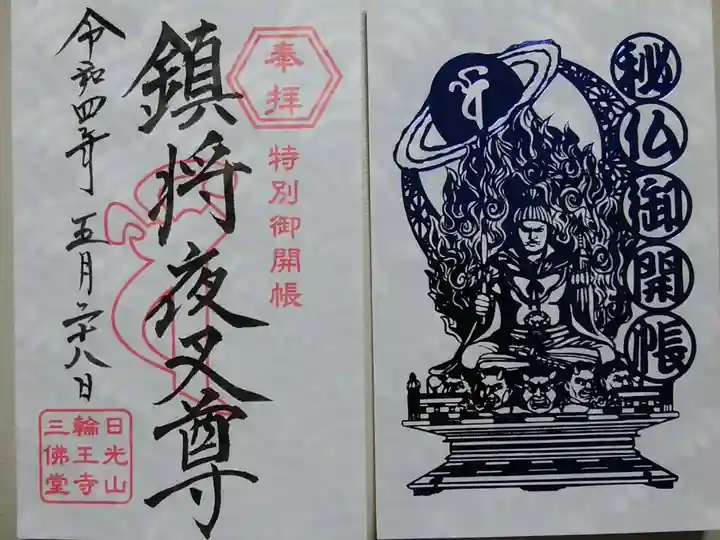 秘仏御開帳
奉拝
特別御開帳
鎮将夜叉尊
令和四年 五月二十八日
日光山
輪王寺
三佛堂